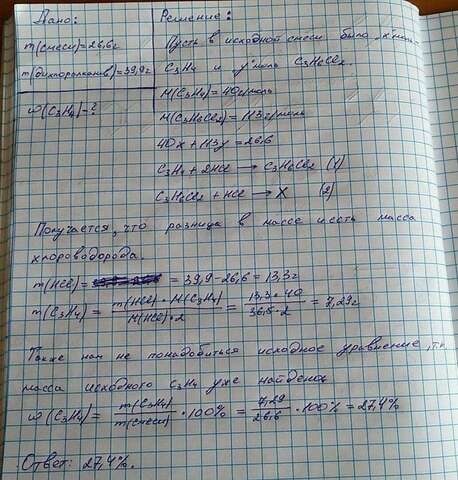 Дано:
m(смеси)=26,6г
m(дихлоралканов)=39,9г
ω(C3H4)-?
Решение:
Пусть в исходной смеси было x моль
C3H4 и y моль C3H6Cl2.
M(C3H4)=40г/моль
M(C3H6Cl2)=113г/моль
40x+113y=26,6
C3H4 + 2HCl → C3H6Cl2 (1)
C3H6Cl2 + HCl → X (2)
Получается, что разница в массе и есть масса
хлороводорода.
m(HCl)= = 39,9-26,6=13,3г
m(C3H4)= m(HCl)·M(C3H4) / M(HCl)·2 = 13,3·40 / 36,5·2 = 7,29г
Также нам не понадобиться исходное уравнение, т.к
масса исходного C3H4 уже найдена
ω(C3H4)= m(C3H4) / m(смеси) ·100% = 7,29 / 26,6 ·100% = 27,4%
Ответ: 27,4%.